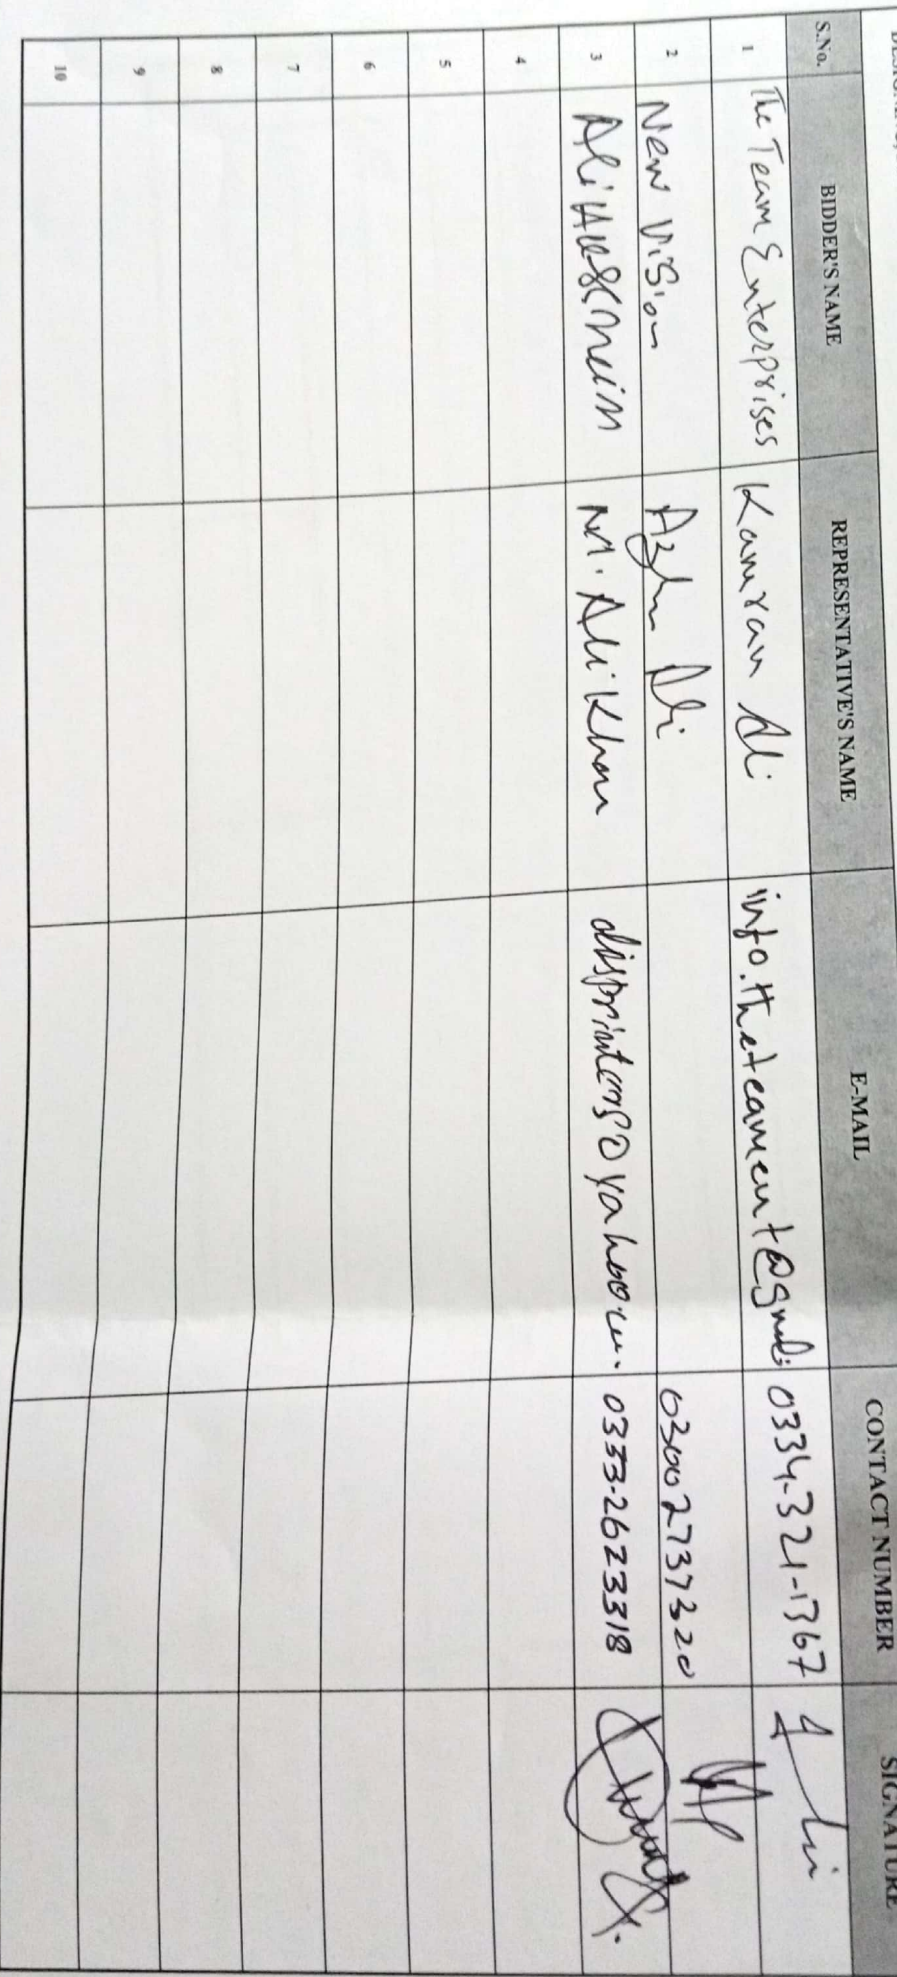 S.No. BIDDER'S NAME REPRESENTATIVE'S NAME E-MAIL CONTACT NUMBER SIGNATURE
1 The Team Enterprises Kamran Ali info.theteament@gmail: 0334-321-1367
2 New Vision Ali 03002737320
3 Ali M. Ali Khan 0333-2623318
4
5
6
7
8
9
10